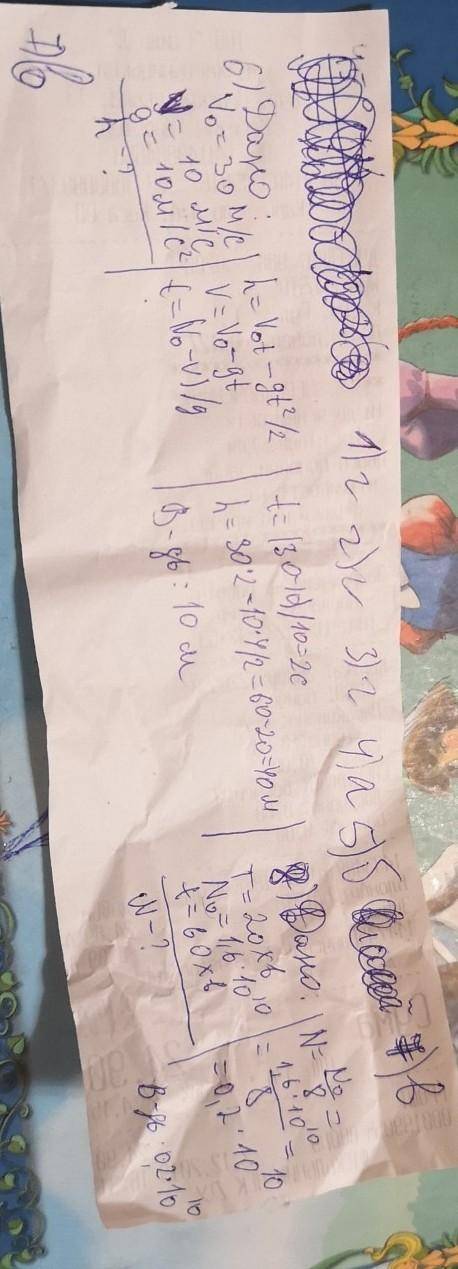 1) г 2) г 3) г 4) а 5) б 7) в
6) Дано:
V₀ = 30 м/с
V = 10 м/с
g = 10 м/с²
h = ?
h = V₀t - gt²/2
V = V₀ - gt
t = (V₀ - V)/g
t = (30-10)/10 = 2с
h = 30·2 = 10·4/2 = 60-20 = 40 м
В-дь: 10 м
8) Дано:
T = 20 хв
N₀ = 1,6·10¹⁰
t = 60 хв
N - ?
N = N₀/8 =
= 1,6·10¹⁰/8 =
= 0,2·10¹⁰
В-дь: 0,2·10¹⁰
7) в